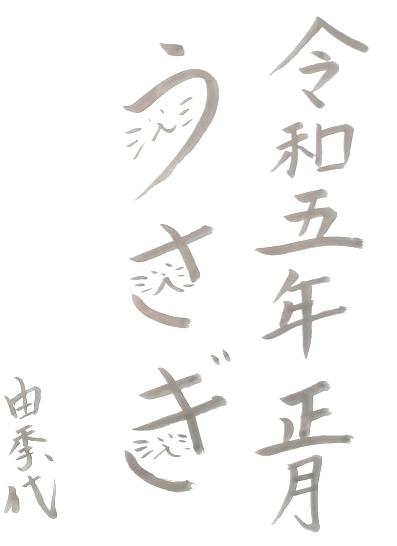 令和五年 正月
うさぎ
由季代